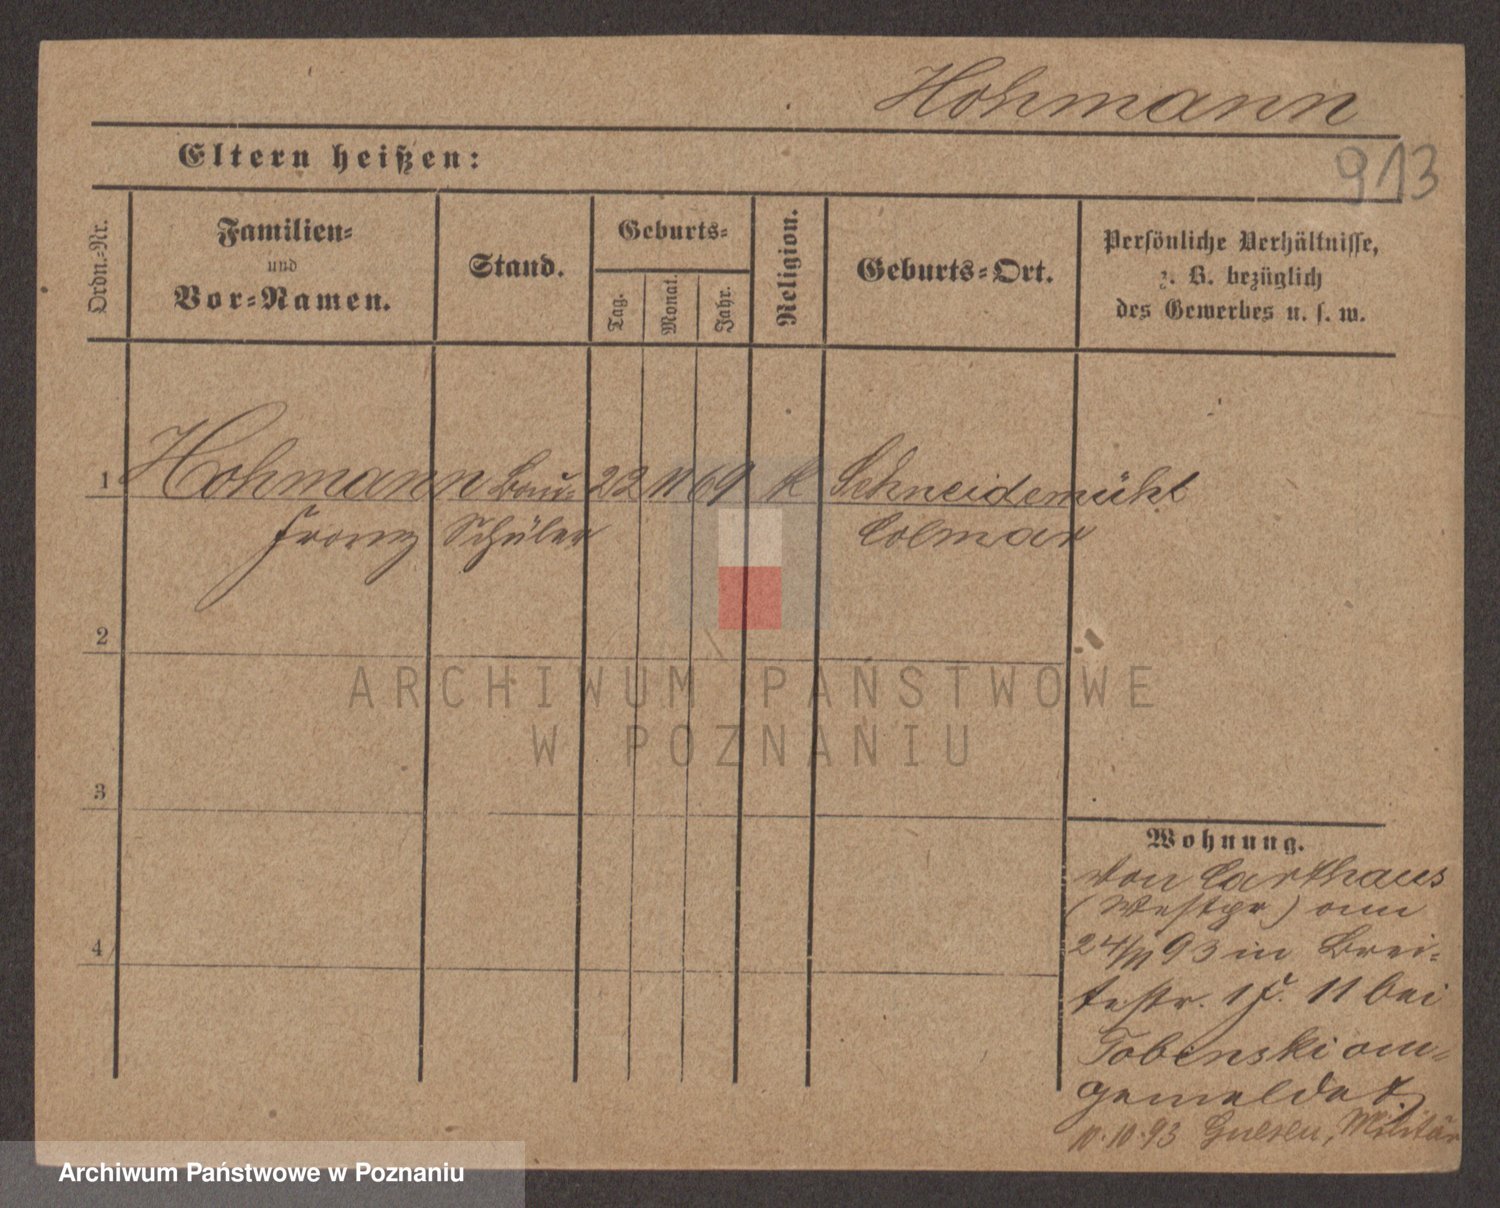 Hohmann
913
Eltern heißen:
Ordn.-Nr.
Familien-
und
Vor-Namen.
Stand.
Geburts-
Tag.
Monat.
Jahr.
Religion.
Geburts-Ort.
Persönliche Verhältnisse,
z. B. bezüglich
des Gewerbes u. s. w.
1 Hohmann Bau- 22 11 69 k Schneidemühl
Franz Schüler Colmar
2
3
4
Wohnung.
von Carthaus
(Westpr) am
24/ 93 in Brei-
testr. 11 bei
Tobenski an-
gemeldet.
10.10.93 Gnesen, Militär
ARCHIWUM PAŃSTWOWE
W POZNANIU
Archiwum Państwowe w Poznaniu